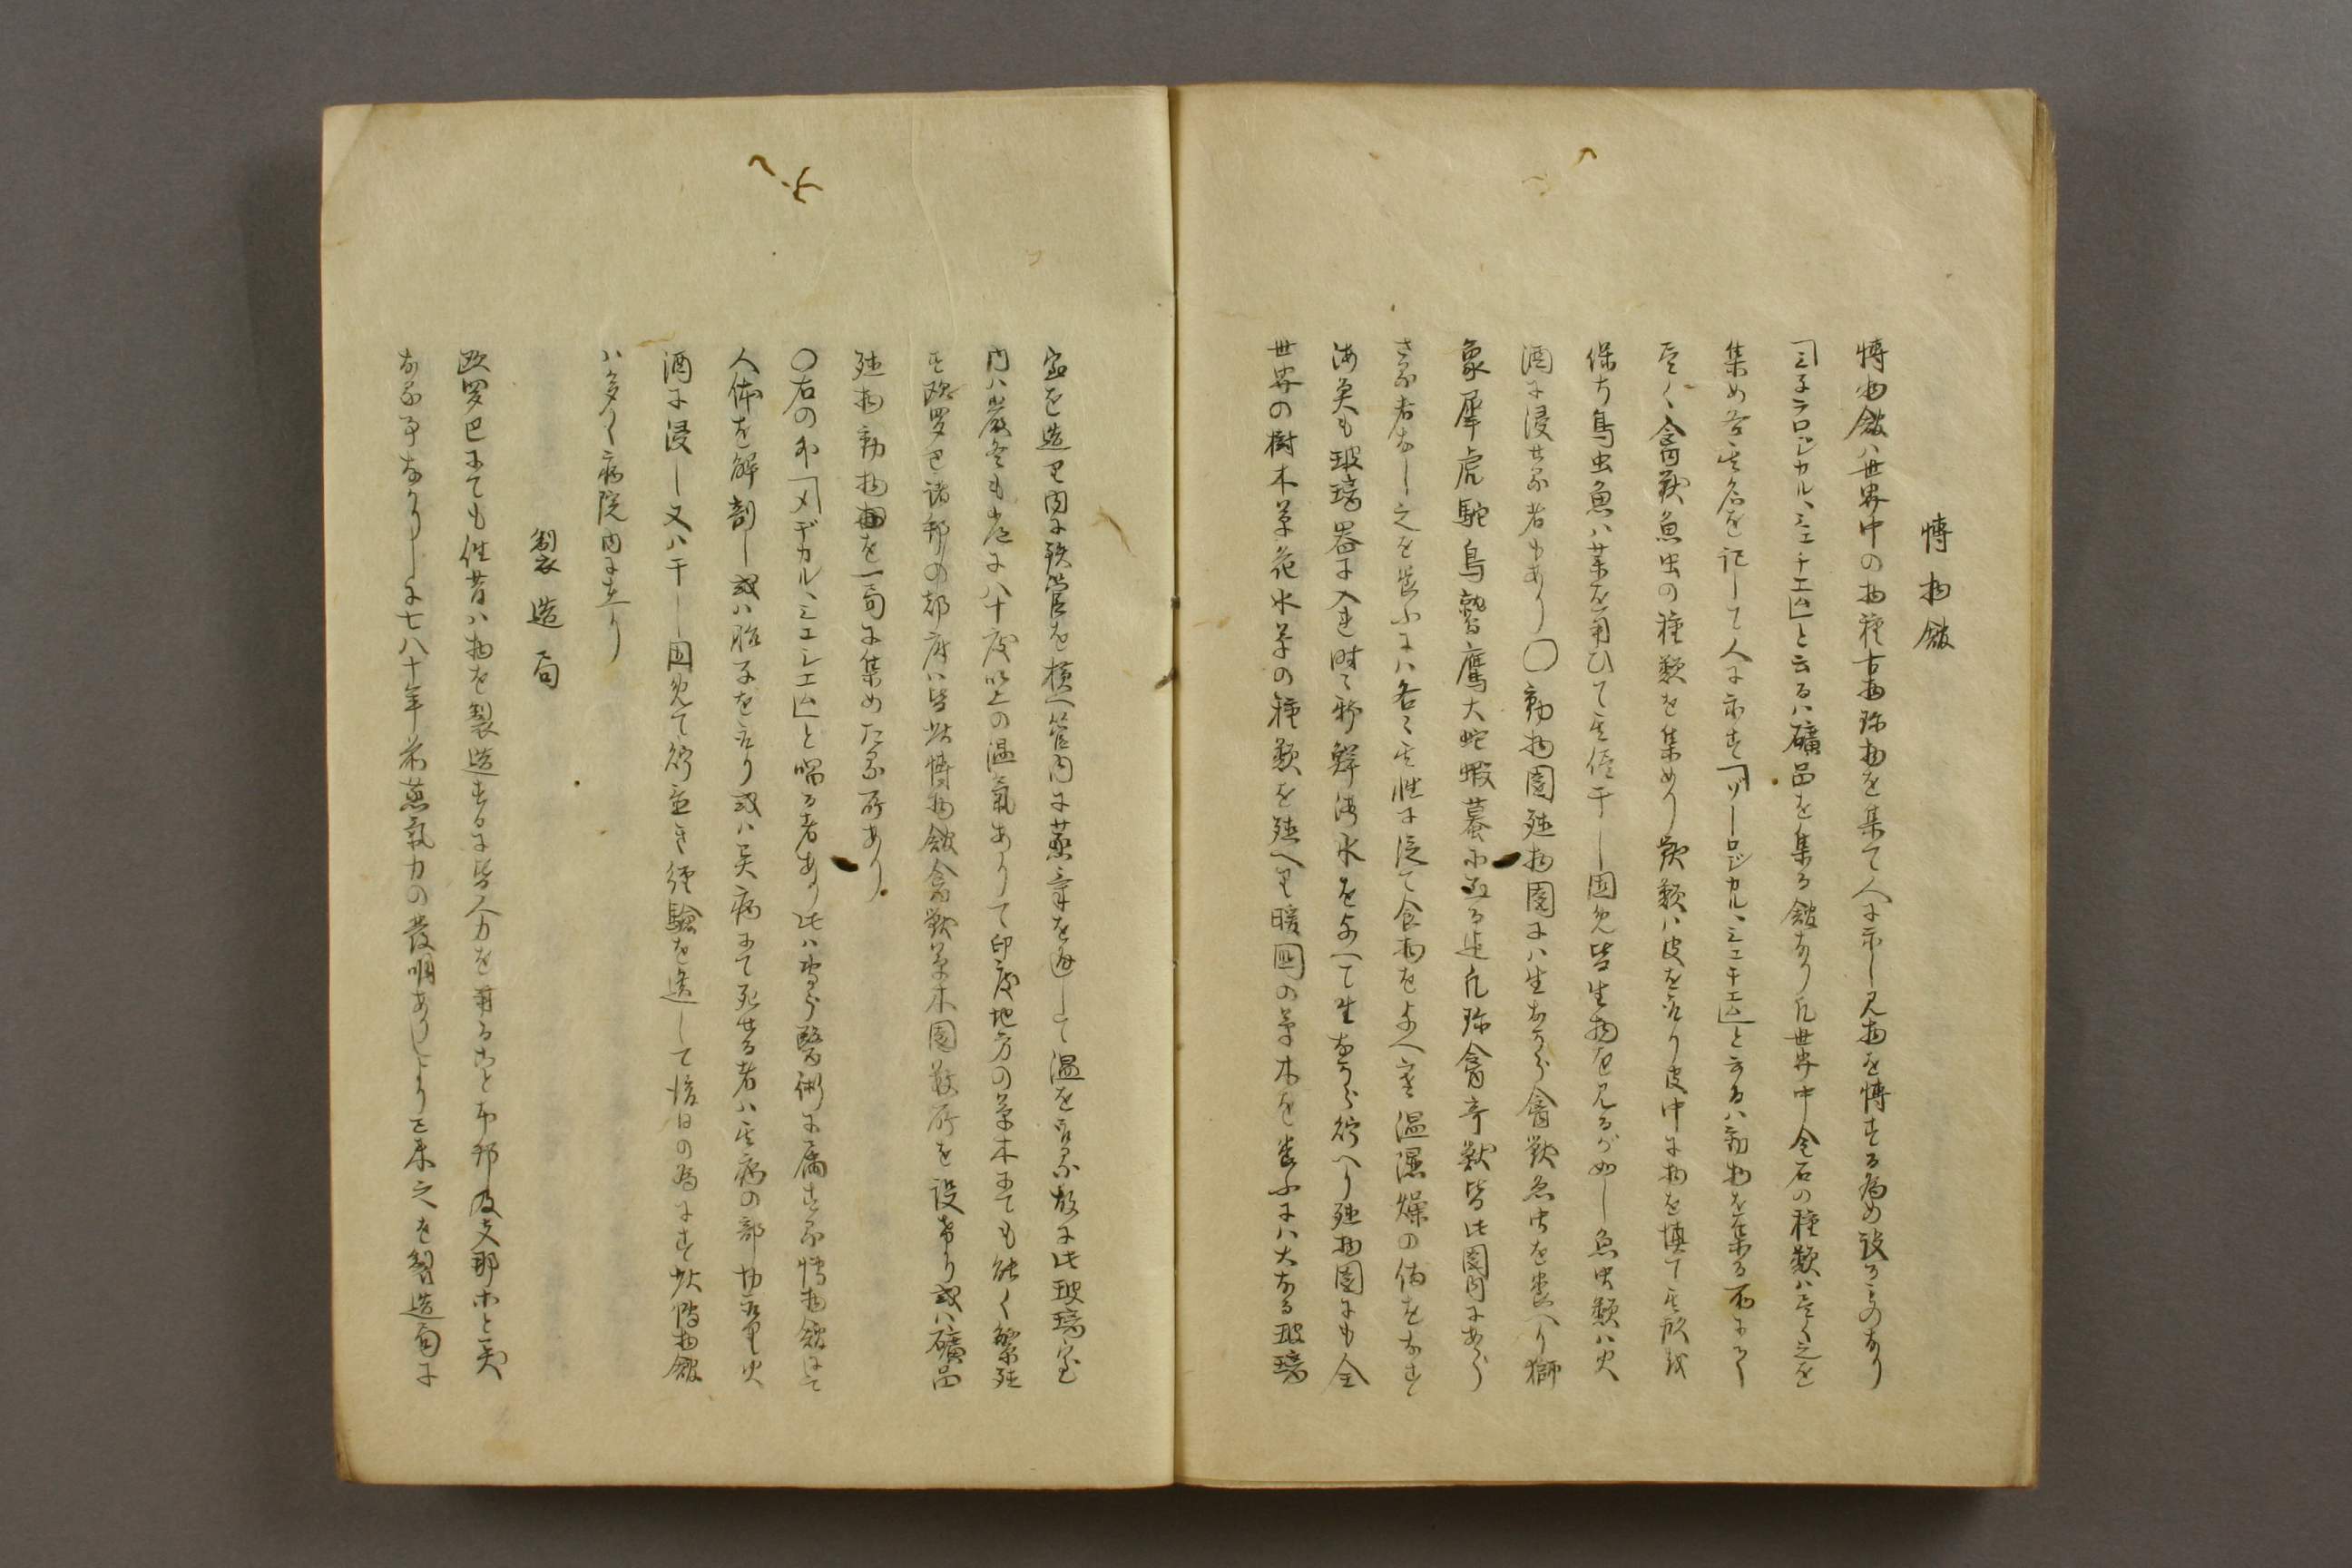 博物館
博物館ハ世界中の物種古物珍物を集て人に示し見物を博する為め設るものなり
「ミ子ラロジカル、ミュヂエム」と云るハ礦品を集る館なり凡世界中金石の種類ハ尽く之を
集め各其名を記して人に示す「ゾーロジカル、ミュヂエム」と云るハ動物を集る所にして
尽く禽獣魚虫の種類を集めり獣類ハ皮を取り皮中に物を填て其形状
保ち鳥虫魚ハ薬を用ひて其侭干し固め皆生物を見るが如し魚虫類ハ火
酒に浸せる者もあり○動物園植物園にハ生ながら禽獣魚虫を養へり獅
象犀虎駝鳥鷲鷹大蛇蝦蟇に至る迄凡珍禽奇獣皆此園内にあら
ざる者なし之を養ふにハ各々其性に従て食物を与へ寒温湿燥の備をなす
海魚も玻璃器に入連時々新鮮海水を与へて生ながら貯へり植物園にも全
世界の樹木草花水草の種類を植へり暖国の草木を養ふにハ大なる玻璃
室を造り内に鉄管を横へ管内に蒸気を通して温を取る故に此玻璃室
内ハ厳冬も常に八十度以上の温気ありて印度地方の草木にても能く繁殖
す欧羅巴諸邦の都府ハ皆此博物館禽獣草木園数所を設けり或ハ礦品
植物動物を一局に集めたる所あり
○右の外「メヂカル、ミュシエム」と唱る者あり此ハ専ら医術に属する博物館にて
人体を解剖し或ハ胎子を取り或ハ異病にて死せる者ハ其病の部切取り火
酒に浸し又ハ干し固めて貯置き経験を遺して後日の為にす此博物館
ハ多く病院内に在り
製造局
欧羅巴にても往昔ハ物を製造するに皆人力を用ること本邦及支那等と異
なる事なかりしに七八十年前蒸気力の発明ありしより已来之を製造局に